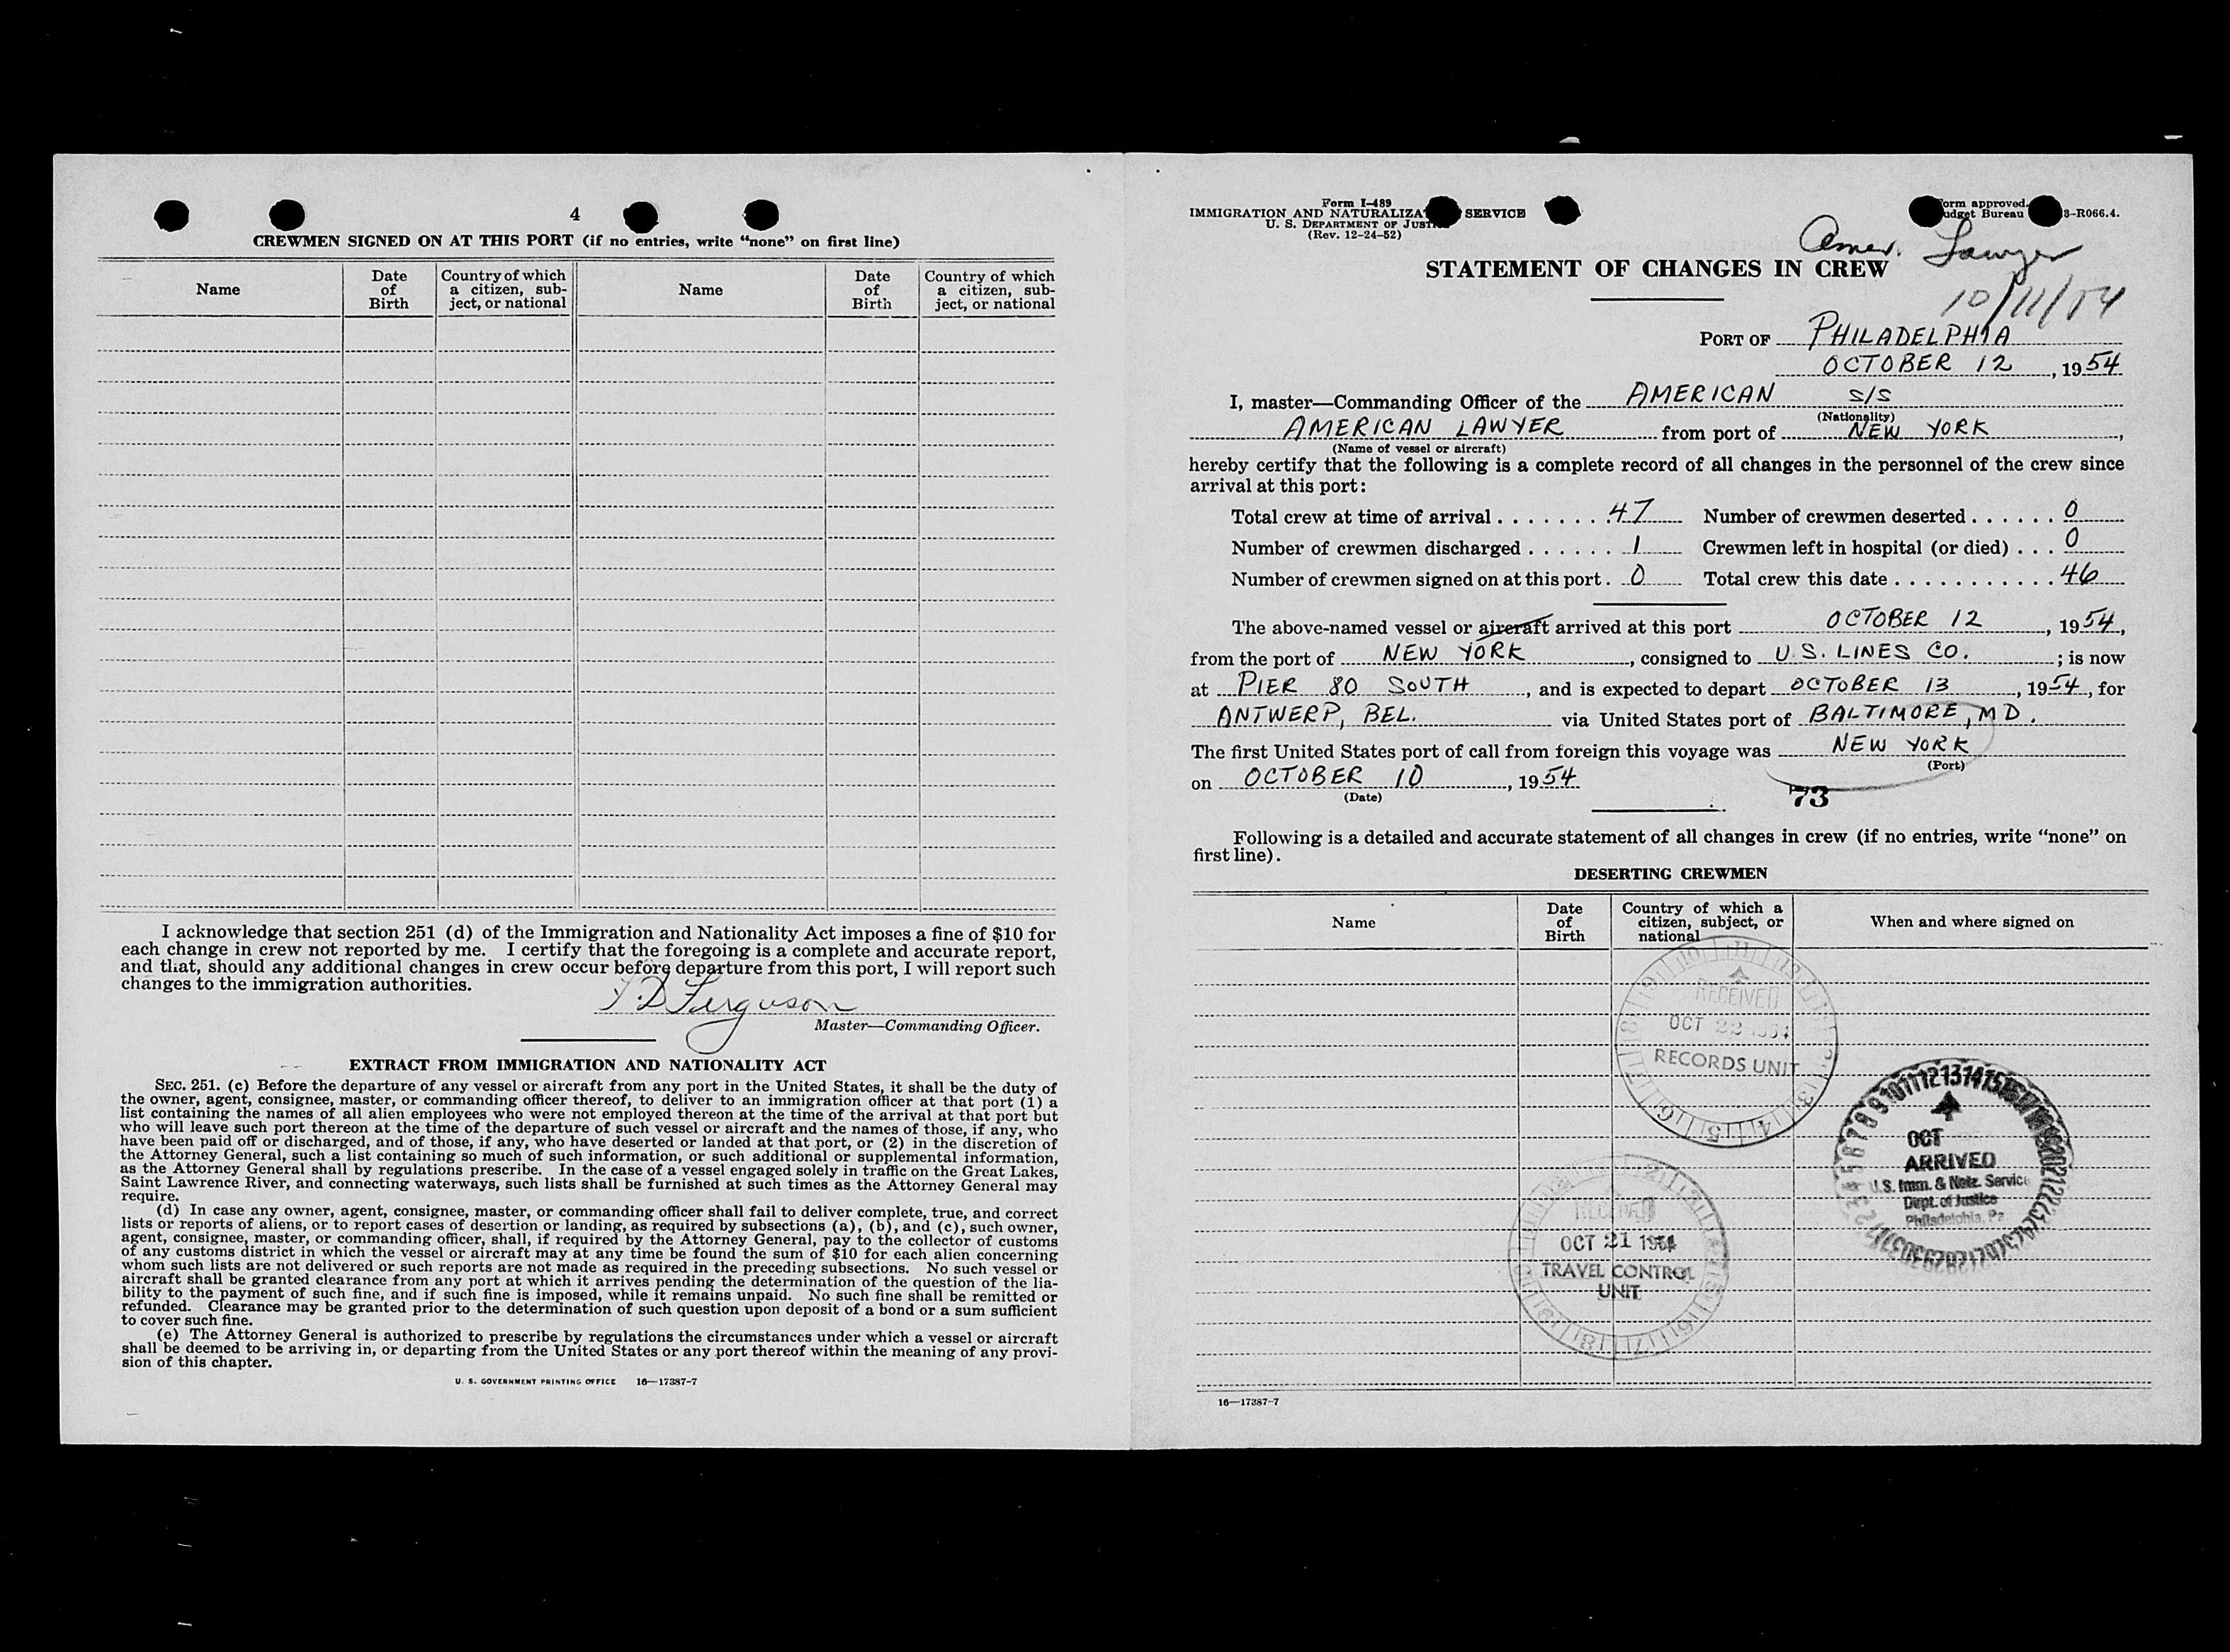 4
CREWMEN SIGNED ON AT THIS PORT (if no entries, write “none” on first line)
Name
Date of Birth
Country of which a citizen, subject, or national
Name
Date of Birth
Country of which a citizen, subject, or national
I acknowledge that section 251 (d) of the Immigration and Nationality Act imposes a fine of $10 for
each change in crew not reported by me. I certify that the foregoing is a complete and accurate report,
and that, should any additional changes in crew occur before departure from this port, I will report such
changes to the immigration authorities.
Ferguson
Master—Commanding Officer.
EXTRACT FROM IMMIGRATION AND NATIONALITY ACT
SEC. 251. (c) Before the departure of any vessel or aircraft from any port in the United States, it shall be the duty of
the owner, agent, consignee, master, or commanding officer thereof, to deliver to an immigration officer at that port (1) a
list containing the names of all alien employees who were not employed thereon at the time of the arrival at that port but
who will leave such port thereon at the time of the departure of such vessel or aircraft and the names of those, if any, who
have been paid off or discharged, and of those, if any, who have deserted or landed at that port, or (2) in the discretion of
the Attorney General, such a list containing so much of such information, or such additional or supplemental information,
as the Attorney General shall by regulations prescribe. In the case of a vessel engaged solely in traffic on the Great Lakes,
Saint Lawrence River, and connecting waterways, such lists shall be furnished at such times as the Attorney General may
require.
(d) In case any owner, agent, consignee, master, or commanding officer shall fail to deliver complete, true, and correct
lists or reports of aliens, or to report cases of desertion or landing, as required by subsections (a), (b), and (c), such owner,
agent, consignee, master, or commanding officer, shall, if required by the Attorney General, pay to the collector of customs
of any customs district in which the vessel or aircraft may at any time be found the sum of $10 for each alien concerning
whom such lists are not delivered or such reports are not made as required in the preceding subsections. No such vessel or
aircraft shall be granted clearance from any port at which it arrives pending the determination of the question of the lia-
bility to the payment of such fine, and if such fine is imposed, while it remains unpaid. No such fine shall be remitted or
refunded. Clearance may be granted prior to the determination of such question upon deposit of a bond or a sum sufficient
to cover such fine.
(e) The Attorney General is authorized to prescribe by regulations the circumstances under which a vessel or aircraft
shall be deemed to be arriving in, or departing from the United States or any port thereof within the meaning of any provi-
sion of this chapter.
U. S. GOVERNMENT PRINTING OFFICE 16—17387-7
Form I-489
IMMIGRATION AND NATURALIZA SERVICE
U. S. DEPARTMENT OF JUSTI
(Rev. 12-24-52)
orm approved.
udget Bureau 3-R066.4.
Amer. Lawyer
10/11/54
STATEMENT OF CHANGES IN CREW
PORT OF PHILADELPHIA
OCTOBER 12, 1954
I, master—Commanding Officer of the AMERICAN S/S
(Nationality)
AMERICAN LAWYER from port of NEW YORK,
(Name of vessel or aircraft)
hereby certify that the following is a complete record of all changes in the personnel of the crew since
arrival at this port:
Total crew at time of arrival 47 Number of crewmen deserted 0
Number of crewmen discharged 1 Crewmen left in hospital (or died) 0
Number of crewmen signed on at this port 0 Total crew this date 46
The above-named vessel or aircraft arrived at this port OCTOBER 12, 1954,
from the port of NEW YORK, consigned to U.S. LINES CO.; is now
at PIER 80 SOUTH, and is expected to depart OCTOBER 13, 1954, for
ANTWERP, BEL. via United States port of BALTIMORE, MD.
The first United States port of call from foreign this voyage was NEW YORK
(Port)
on OCTOBER 10, 1954
(Date)
73
Following is a detailed and accurate statement of all changes in crew (if no entries, write “none” on
first line).
DESERTING CREWMEN
Name
Date of Birth
Country of which a citizen, subject, or national
When and where signed on
RECEIVED
OCT 22 1954
RECORDS UNIT
OCT
ARRIVED
U.S. Imm. & Natz. Service
Dept. of Justice
Philadelphia, Pa
RECEIVED
OCT 21 1954
TRAVEL CONTROL
UNIT
16—17387-7